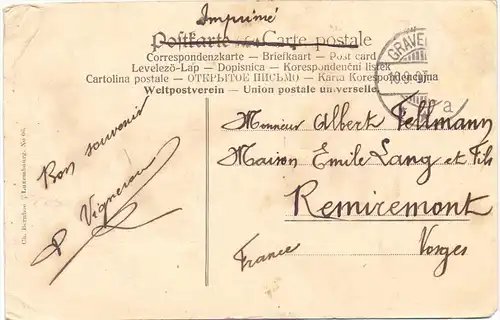 Imprimé
Postkarte — Carte postale
Correspondenzkarte — Briefkaart — Post card
Levelező-Lap — Dopisnica — Korespondenční listek
Cartolina postale — ОТКРЫТОЕ ПИСЬМО — Karta Korespondencyjna
Weltpostverein — Union postale universelle
Bon souvenir
P Vigneron
Monsieur Albert Fellmann
Maison Emile Lang et Fils
Remiremont
Vosges
France
Ch. Bernhoeft, Luxembourg. No 66.
a